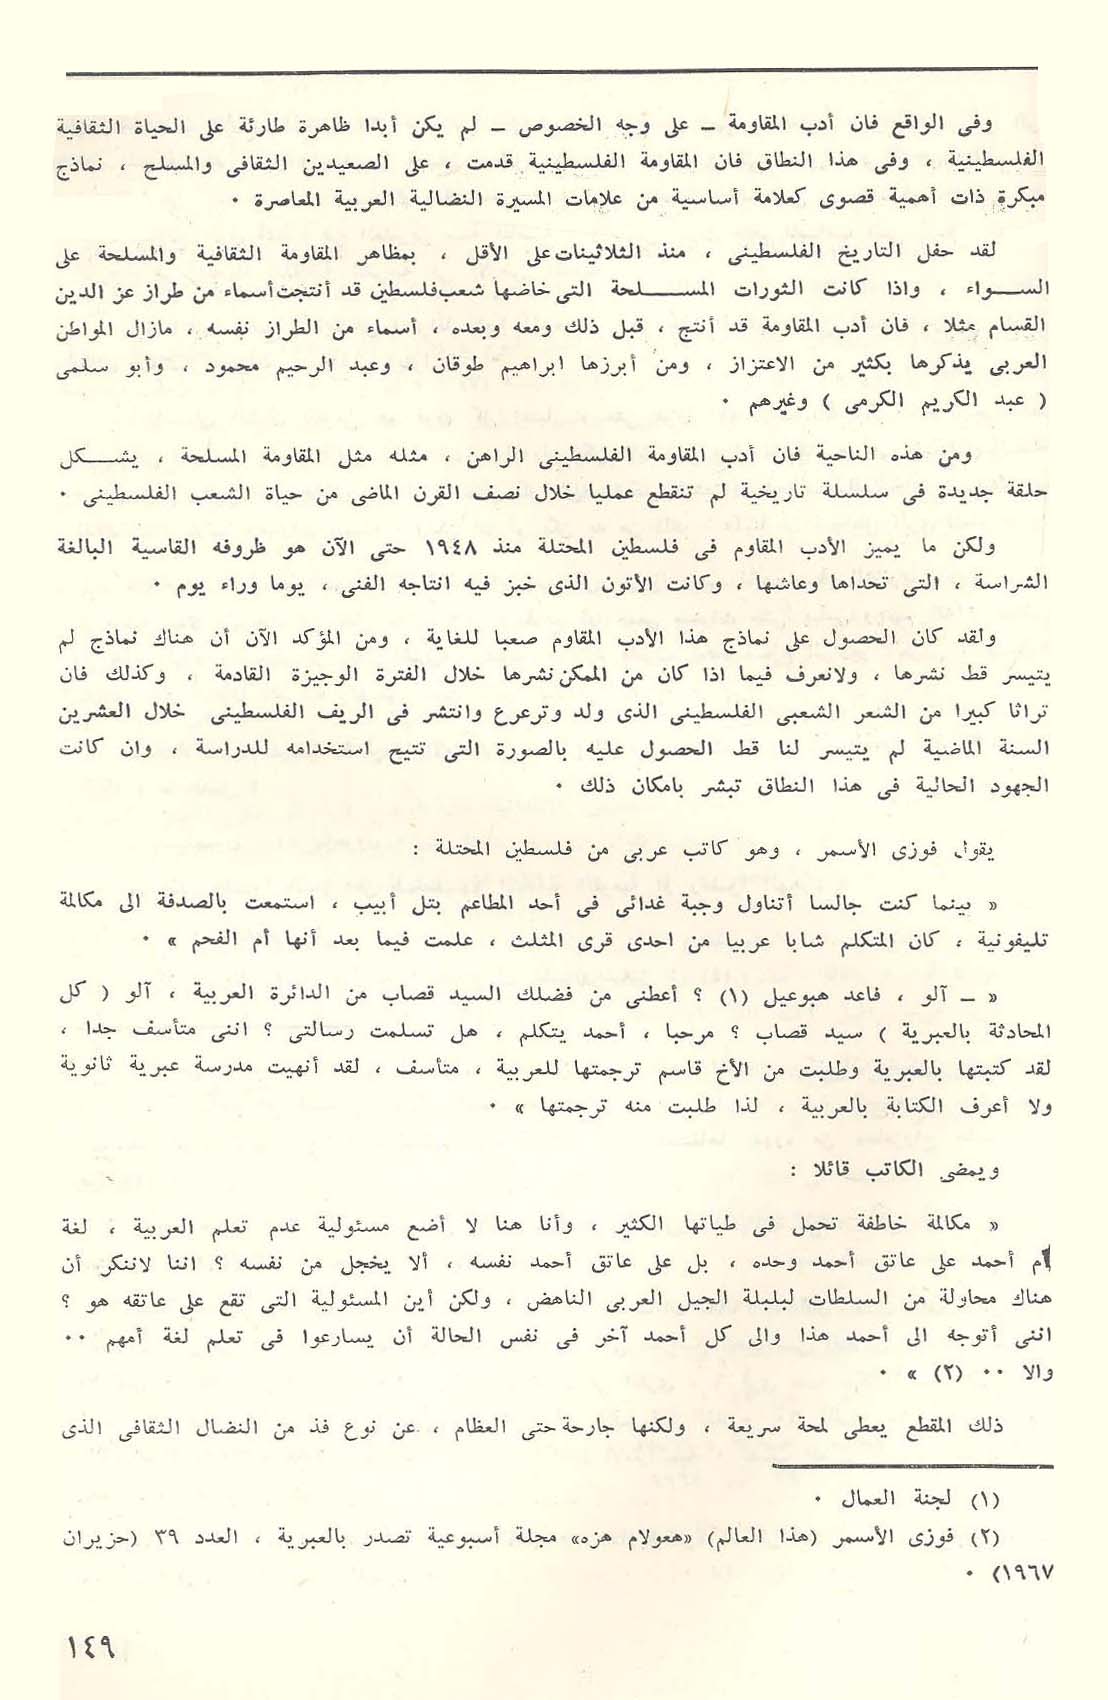 وفى الواقع فان أدب المقاومة ــ على وجه الخصوص ــ لم يكن أبدا ظاهرة طارئة على الحياة الثقافية
الفلسطينية ، وفى هذا النطاق فان المقاومة الفلسطينية قدمت ، على الصعيدين الثقافى والمسلح ، نماذج
مبكرة ذات أهمية قصوى كعلامة أساسية من علامات المسيرة النضالية العربية المعاصرة ٠
لقد حفل التاريخ الفلسطينى ، منذ الثلاثينات على الأقل ، بمظاهر المقاومة الثقافية والمسلحة على
الســواء ، واذا كانت الثورات المســـلحة التى خاضها شعب فلسطين قد أنتجت أسماء من طراز عز الدين
القسام مثلا ، فان أدب المقاومة قد أنتج ، قبل ذلك ومعه وبعده ، أسماء من الطراز نفسه ، مازال المواطن
العربى يذكرها بكثير من الاعتزاز ، ومن أبرزها ابراهيم طوقان ، وعبد الرحيم محمود ، وأبو سلمى
( عبد الكريم الكرمى ) وغيرهم ٠
ومن هذه الناحية فان أدب المقاومة الفلسطينى الراهن ، مثله مثل المقاومة المسلحة ، يشــكل
حلقة جديدة فى سلسلة تاريخية لم تنقطع عمليا خلال نصف القرن الماضى من حياة الشعب الفلسطينى ٠
ولكن ما يميز الأدب المقاوم فى فلسطين المحتلة منذ ١٩٤٨ حتى الآن هو ظروفه القاسية البالغة
الشراسة ، التى تحداها وعاشها ، وكانت الأتون الذى خبز فيه انتاجه الفنى ، يوما وراء يوم ٠
ولقد كان الحصول على نماذج هذا الأدب المقاوم صعبا للغاية ، ومن المؤكد الآن أن هناك نماذج لم
يتيسر قط نشرها ، ولانعرف فيما اذا كان من الممكن نشرها خلال الفترة الوجيزة القادمة ، وكذلك فان
تراثا كبيرا من الشعر الشعبى الفلسطينى الذى ولد وترعرع وانتشر فى الريف الفلسطينى خلال العشرين
السنة الماضية لم يتيسر لنا قط الحصول عليه بالصورة التى تتيح استخدامه للدراسة ، وان كانت
الجهود الحالية فى هذا النطاق تبشر بامكان ذلك ٠
يقول فوزى الأسمر ، وهو كاتب عربى من فلسطين المحتلة :
« بينما كنت جالسا أتناول وجبة غدائى فى أحد المطاعم بتل أبيب ، استمعت بالصدفة الى مكالمة
تليفونية ، كان المتكلم شابا عربيا من احدى قرى المثلث ، علمت فيما بعد أنها أم الفحم » ٠
« ــ آلو ، فاعد هبوعيل (١) ؟ أعطنى من فضلك السيد قصاب من الدائرة العربية ، آلو ( كل
المحادثة بالعبرية ) سيد قصاب ؟ مرحبا ، أحمد يتكلم ، هل تسلمت رسالتى ؟ اننى متأسف جدا ،
لقد كتبتها بالعبرية وطلبت من الأخ قاسم ترجمتها للعربية ، متأسف ، لقد أنهيت مدرسة عبرية ثانوية
ولا أعرف الكتابة بالعربية ، لذا طلبت منه ترجمتها » ٠
ويمضى الكاتب قائلا :
« مكالمة خاطفة تحمل فى طياتها الكثير ، وأنا هنا لا أضع مسئولية عدم تعلم العربية ، لغة
أم أحمد على عاتق أحمد وحده ، بل على عاتق أحمد نفسه ، ألا يخجل من نفسه ؟ اننا لاننكر أن
هناك محاولة من السلطات لبلبلة الجيل العربى الناهض ، ولكن أين المسئولية التى تقع على عاتقه هو ؟
اننى أتوجه الى أحمد هذا والى كل أحمد آخر فى نفس الحالة أن يسارعوا فى تعلم لغة أمهم ٠٠
والا ٠٠ (٢) » ٠
ذلك المقطع يعطى لمحة سريعة ، ولكنها جارحة حتى العظام ، عن نوع فذ من النضال الثقافى الذى
(١) لجنة العمال ٠
(٢) فوزى الأسمر (هذا العالم) «هعولام هزه» مجلة أسبوعية تصدر بالعبرية ، العدد ٣٩ (حزيران
١٩٦٧) ٠
١٤٩